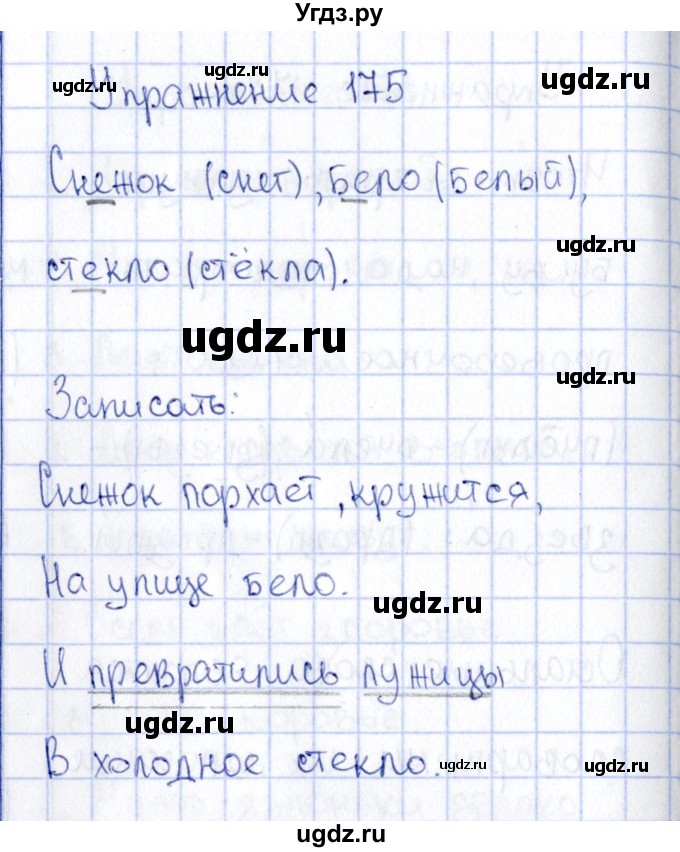 Угдз.ру
ugdz.ru
ugdz.ru
ugdz.ru
Упражнение 175
Снежок (снег), Бело (Белый),
ugdz.ru
стекло (стёкла).
ugdz.ru
ugdz.ru
Записать:
Снежок порхает, кружится,
На улице бело.
ugdz.ru
И превратились лужицы
ugdz.ru
В холодное стекло.
ugdz.ru
ugdz.ru
ugdz.ru